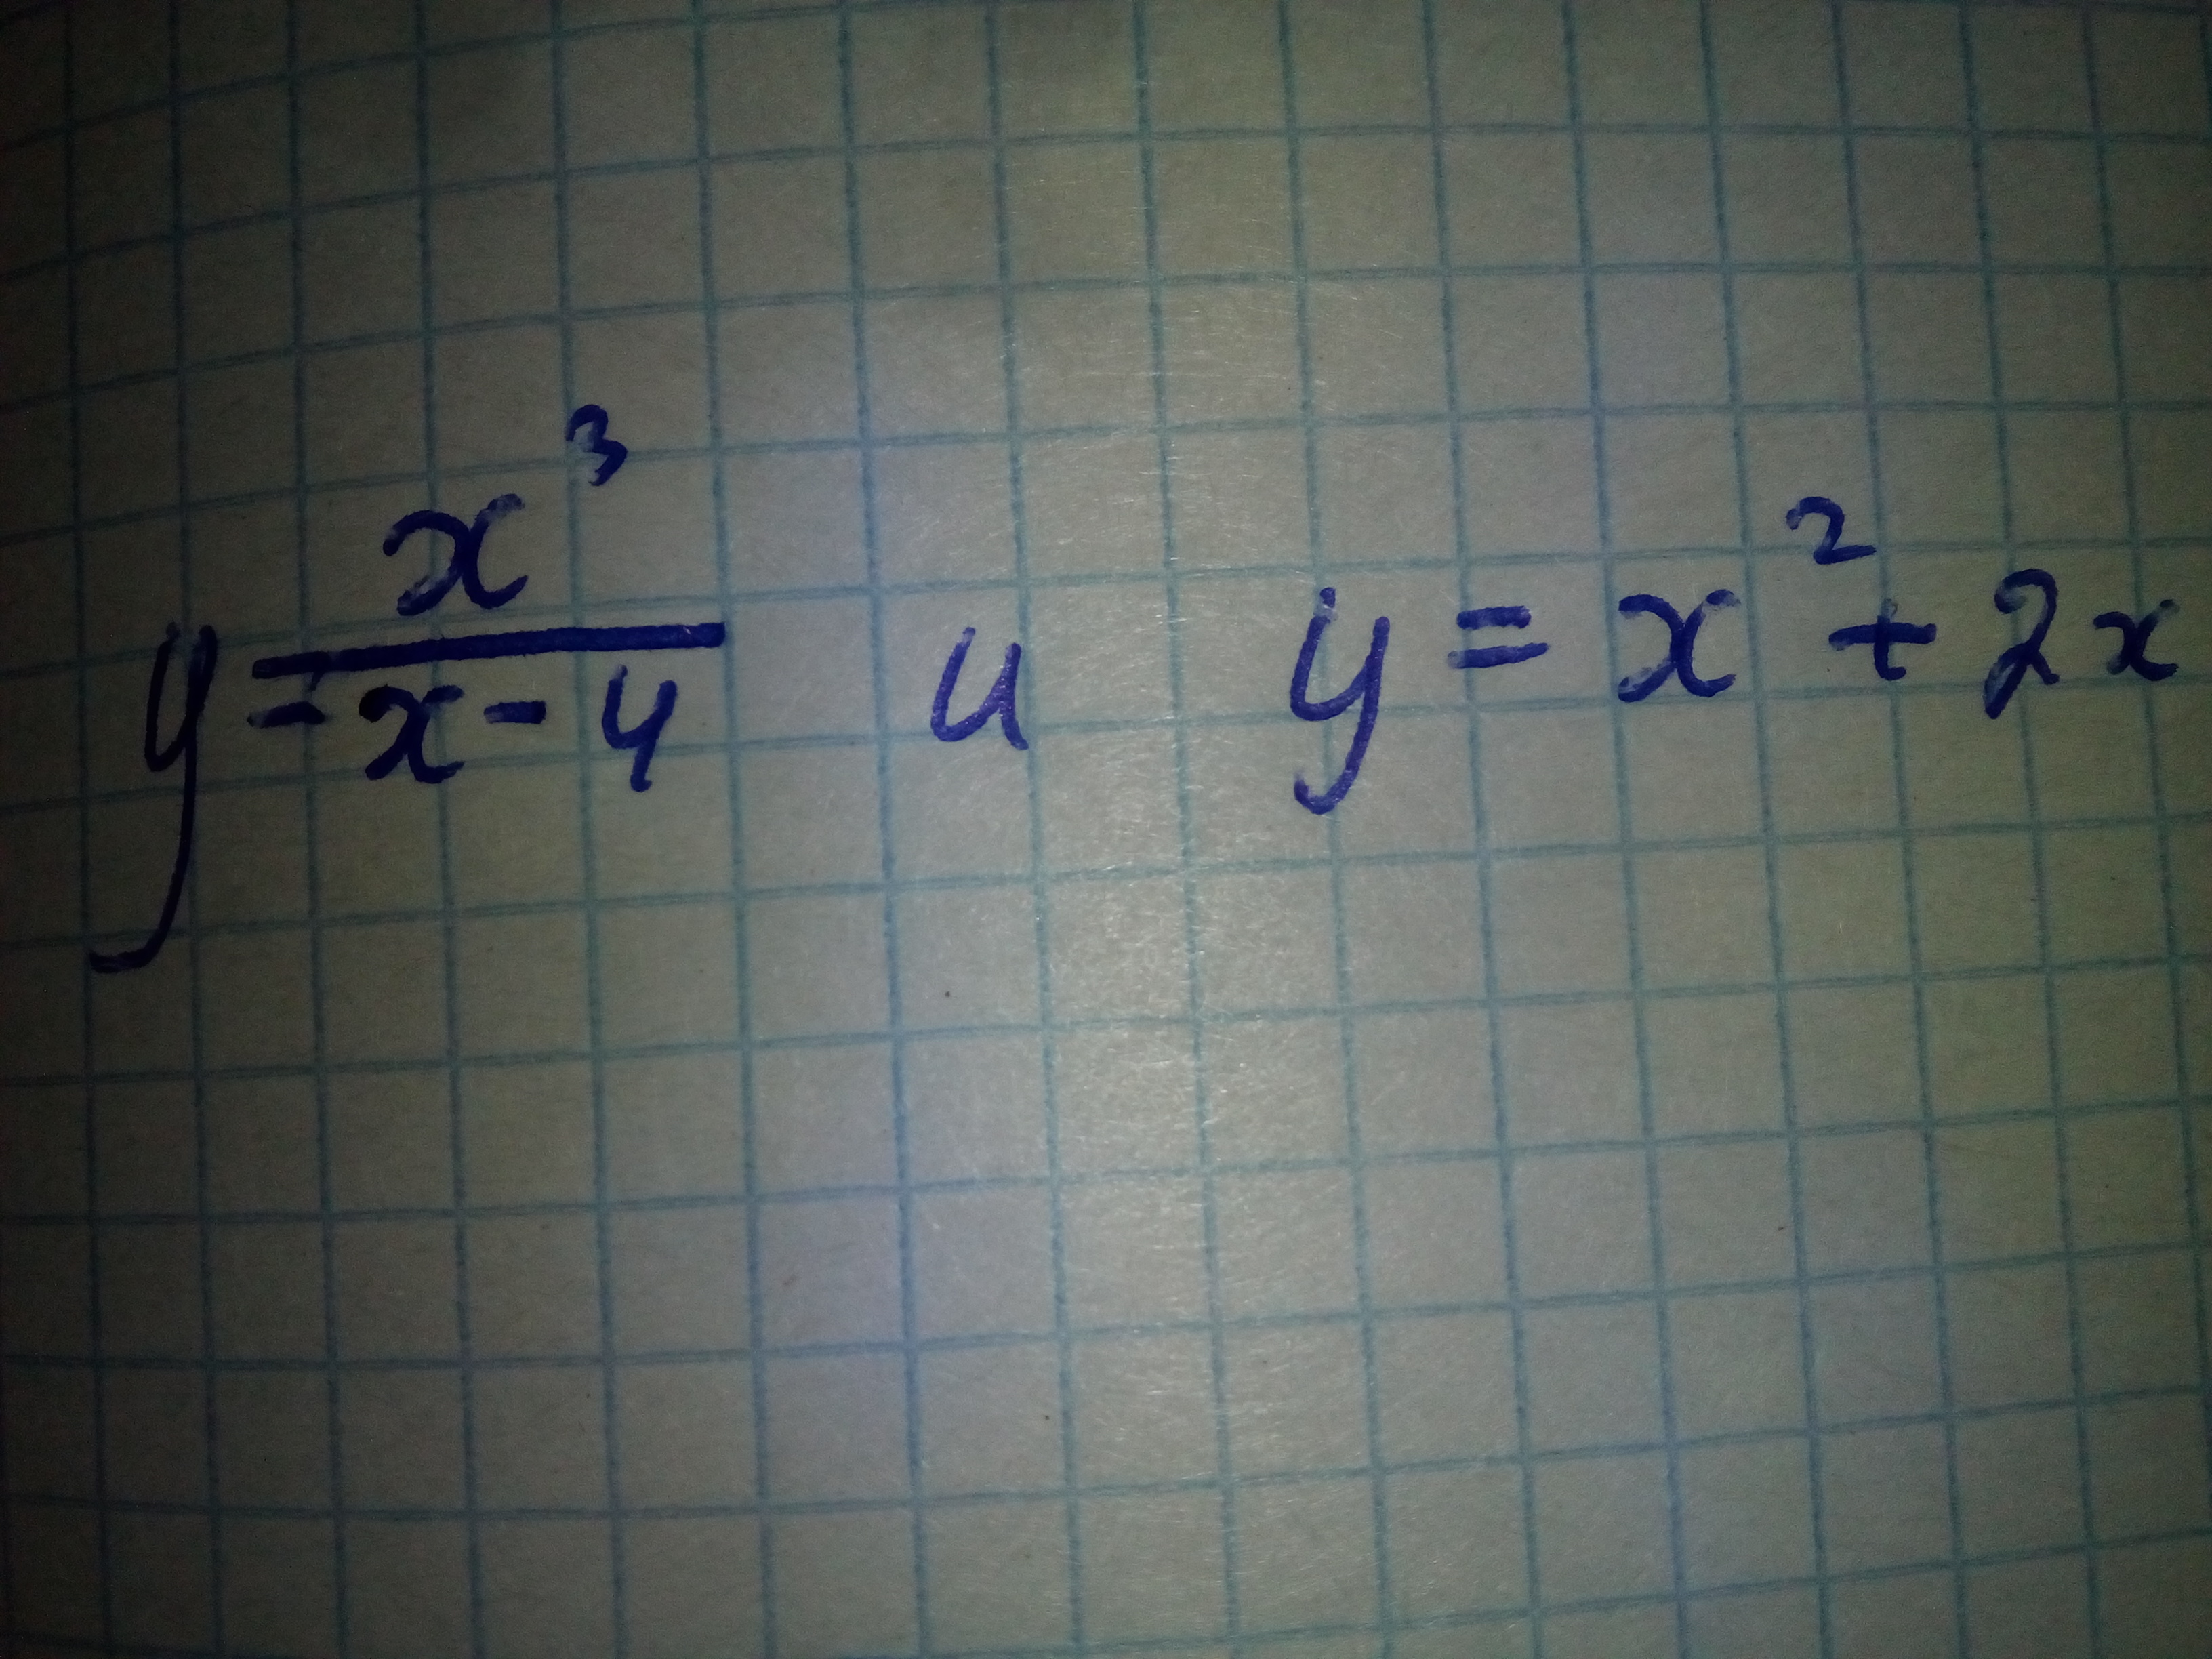 y = x³/(x - 4) и y = x² + 2x